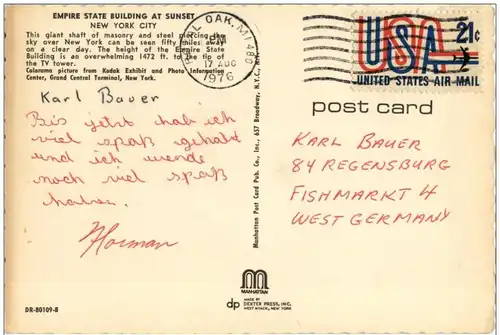 EMPIRE STATE BUILDING AT SUNSET
NEW YORK CITY
This giant shaft of masonry and steel piercing the
sky over New York can be seen fifty miles away
on a clear day. The height of the Empire State
Building is an overwhelming 1472 ft. to the tip of
the TV tower.
Colorama picture from Kodak Exhibit and Photo Information
Center, Grand Central Terminal, New York.
Karl Bauer
Bis jetzt hab ich
viel spaß gehabt
und ich werde
noch viel spaß
haben.
Norman
DR-80109-B
Manhattan Post Card Pub. Co., Inc., 657 Broadway, N.Y.C.
MANHATTAN
dp MADE BY
DEXTER PRESS, INC.
WEST NYACK, NEW YORK
OAK, MI 480
PM
17 AUG
1976
USA 21¢
UNITED STATES AIR MAIL
post card
KARL BAUER
84 REGENSBURG
FISHMARKT 4
WEST GERMANY